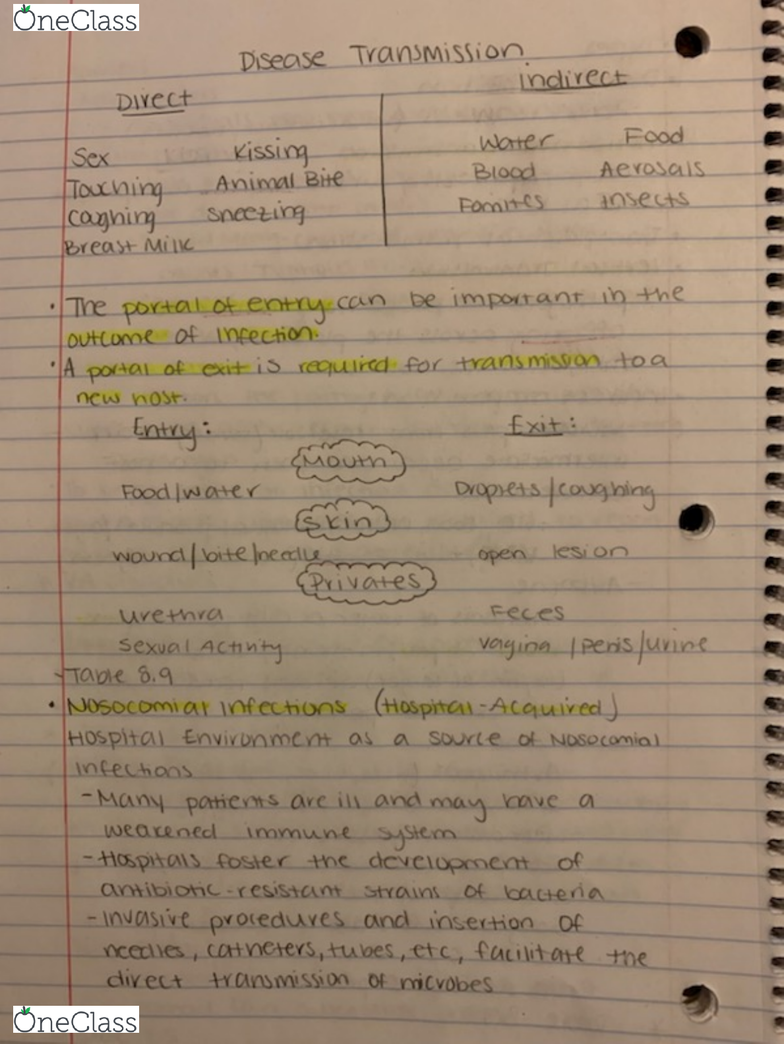 OneClass
Disease Transmission
Direct
indirect
Sex Kissing
Water Food
Touching Animal Bite
Blood Aerosals
Caghing sneezing
Fomites insects
Breast Milk
• The portal of entry can be important in the
outcome of infection.
• A portal of exit is required for transmission to a
new host.
Entry: Exit:
Mouth
Food/water Droplets/coughing
Skin
wound/bite/needle open lesion
Privates
urethra Feces
Sexual Activity vagina/penis/urine
- Table 8.9
• Nosocomial infections (Hospital-Acquired)
Hospital Environment as a source of Nosocomial
infections
- Many patients are ill and may have a
weakened immune system
- Hospitals foster the development of
antibiotic-resistant strains of bacteria
- invasive procedures and insertion of
needles, catheters, tubes, etc, facilitate the
direct transmission of microbes
OneClass